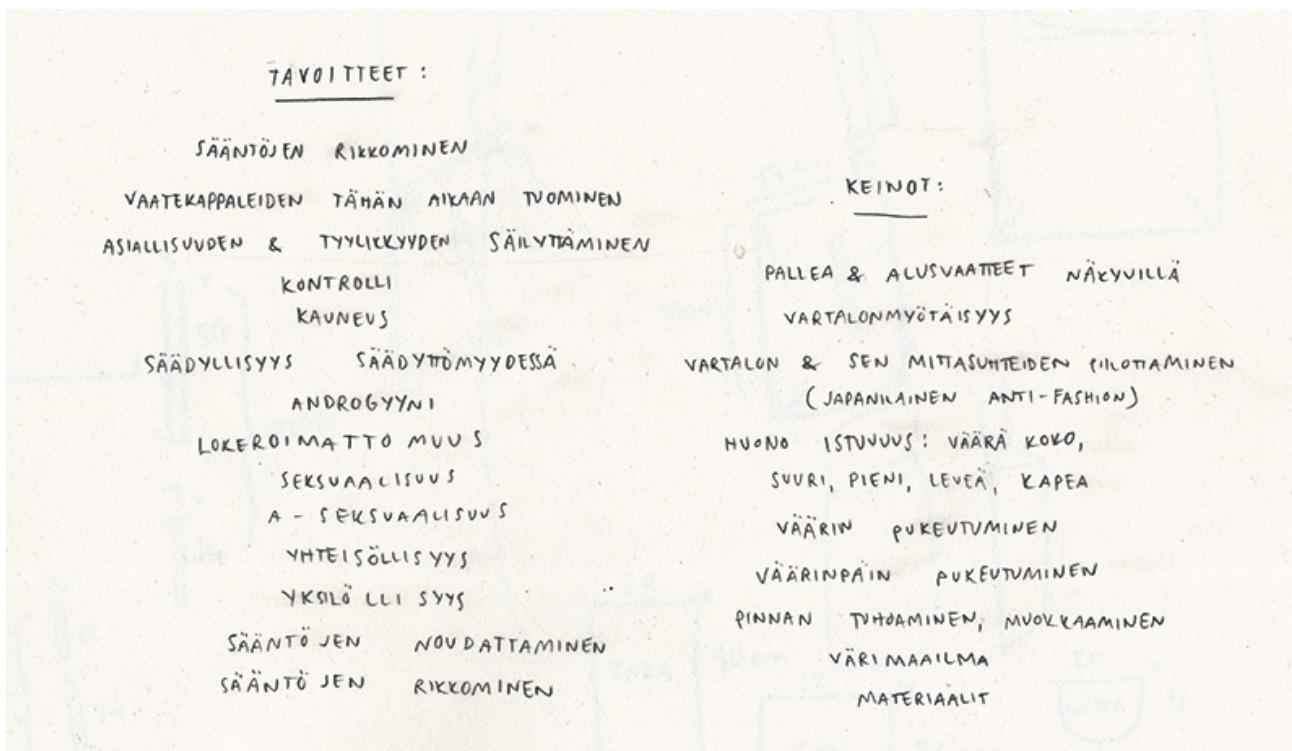 TAVOITTEET:
SÄÄNTÖJEN RIKKOMINEN
VAATEKAPPALEIDEN TÄHÄN AIKAAN TUOMINEN
ASIALLISUUDEN & TYYLIKKYYDEN SÄILYTTÄMINEN
KONTROLLI
KAUNEUS
SÄÄDYLLISYYS SÄÄDYTTÖMYYDESSÄ
ANDROGYYNI
LOKEROIMATTOMUUS
SEKSUAALISUUS
A-SEKSUAALISUUS
YHTEISÖLLISYYS
YKSILÖLLISYYS
SÄÄNTÖJEN NOUDATTAMINEN
SÄÄNTÖJEN RIKKOMINEN
KEINOT:
PALLEA & ALUSVAATTEET NÄKYVILLÄ
VARTALONMYÖTÄISYYS
VARTALON & SEN MITTASUHTEIDEN PIILOTTAMINEN
(JAPANILAINEN ANTI-FASHION)
HUONO ISTUVUUS: VÄÄRÄ KOKO,
SUURI, PIENI, LEVEÄ, KAPEA
VÄÄRIN PUKEUTUMINEN
VÄÄRINPÄIN PUKEUTUMINEN
PINNAN TUHOAMINEN, MUOKKAAMINEN
VÄRIMAAILMA
MATERIAALIT